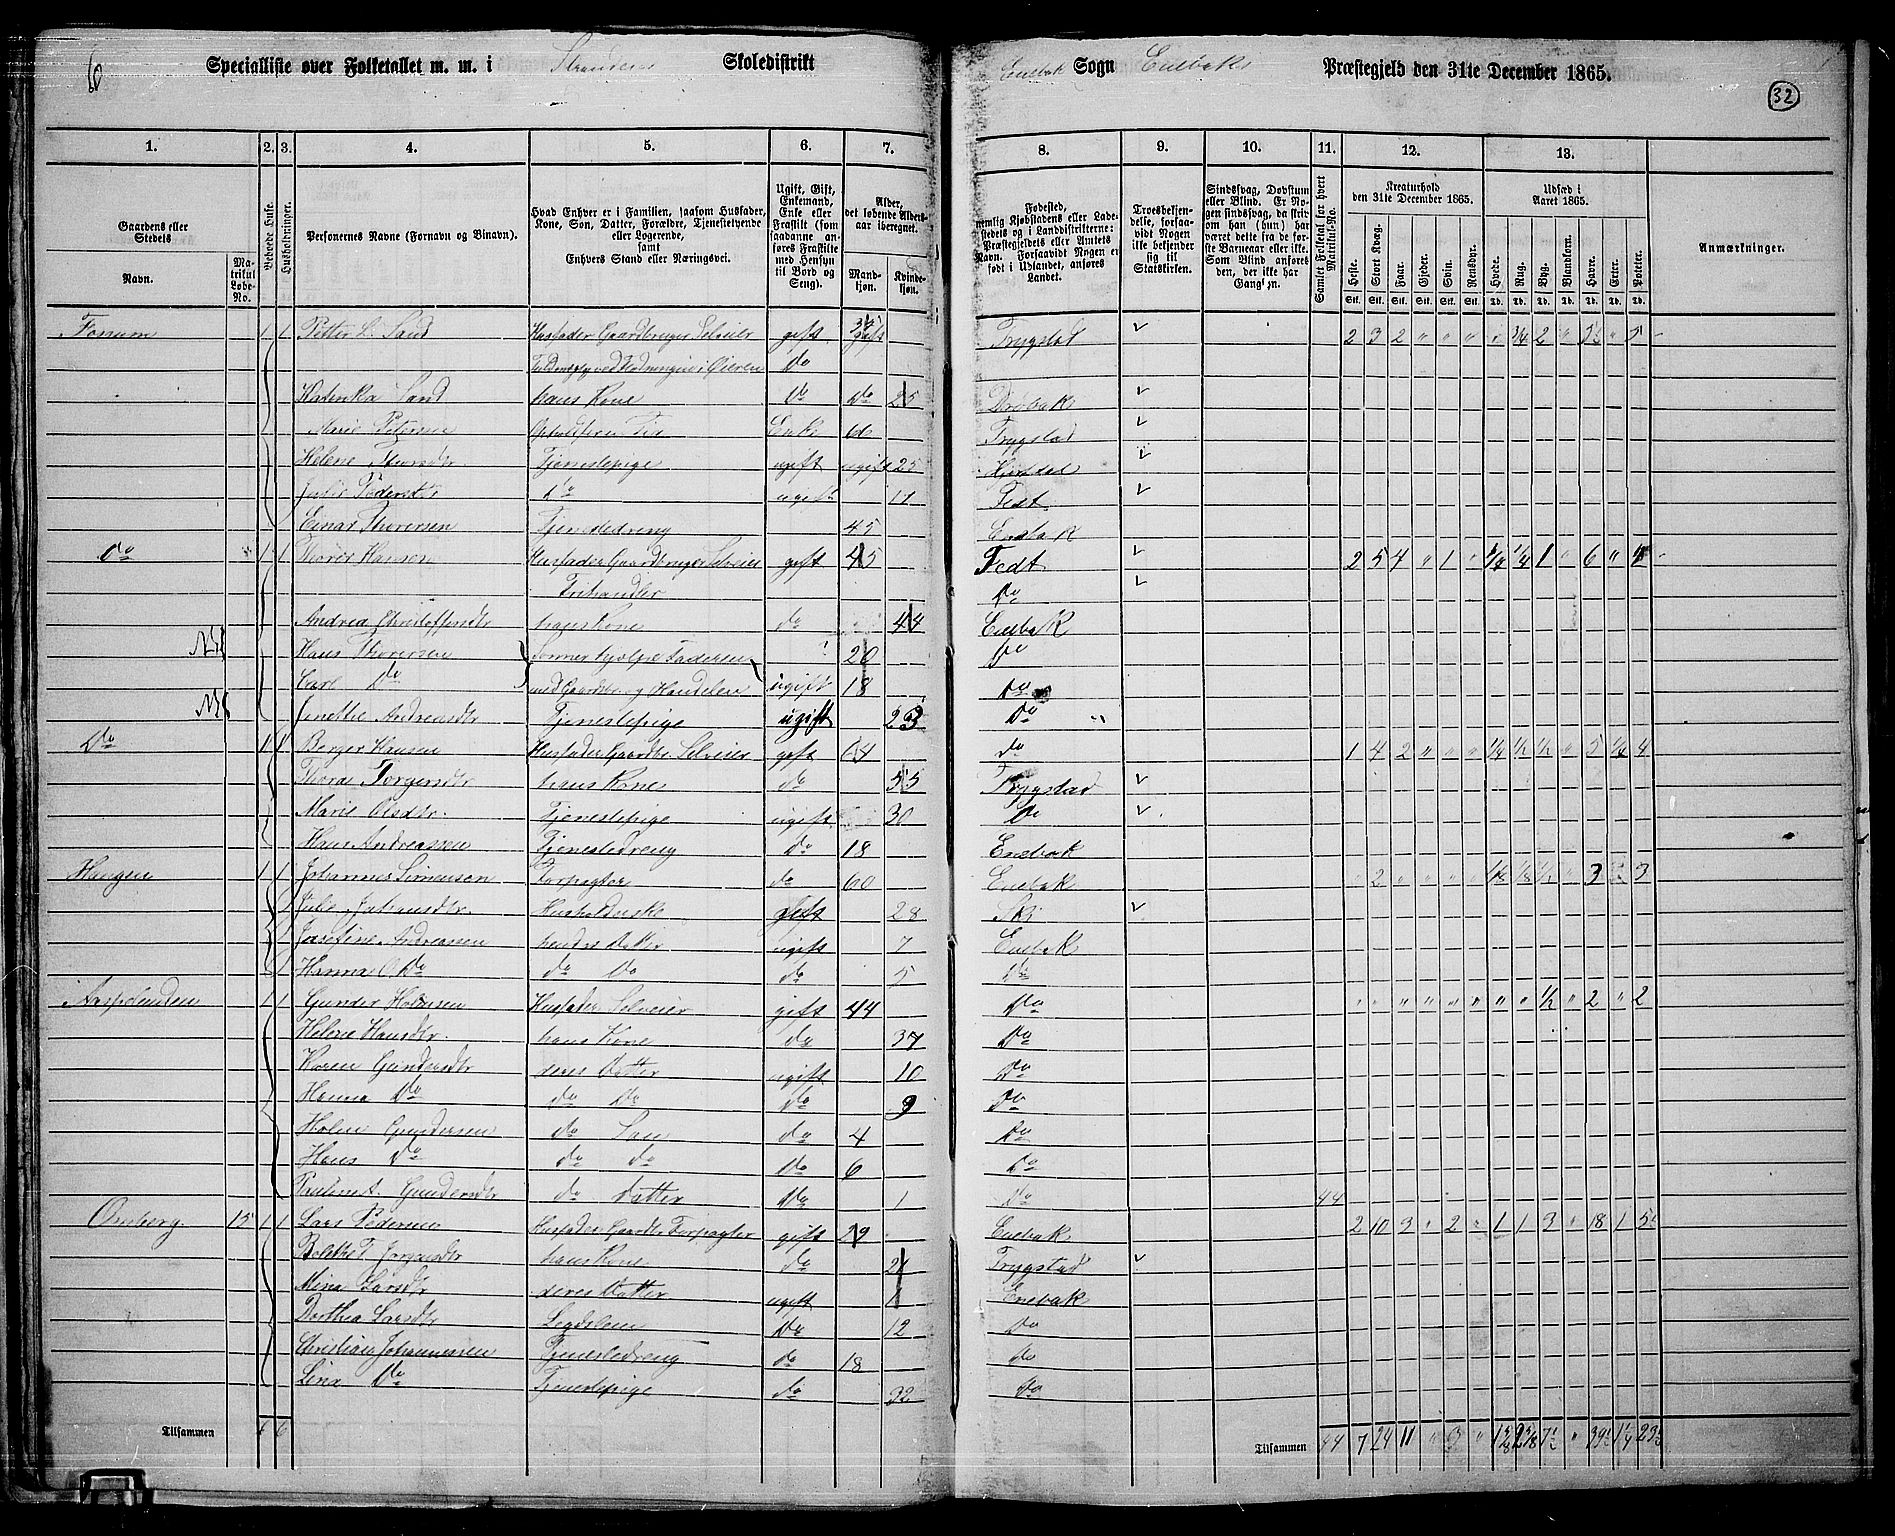 6
Specialliste over Folketallet m. m. i Stranden Skoledistrikt
Enebak Sogn Enebaks Præstegjeld den 31te December 1865.
32
1. 2. 3. 4. 5. 6. 7. 8. 9. 10. 11. 12. 13.
Gaardens eller Stedets
Navn.
Matrikul Løbe-No.
Beboede Huse.
Husholdninger.
Personernes Navne (Fornavn og Binavn).
Hvad Enhver er i Familien, saasom Husfader, Kone, Søn, Datter, Forældre, Tjenestetyende eller Logerende, samt Enhvers Stand eller Næringsvei.
Ugift, Gift, Enkemand, Enke eller Fraskilt (som saadanne anføres Fraskilte med Hensyn til Bord og Seng).
Alder, det løbende Aldersaar iberegnet.
Mandkjøn.
Kvindekjøn.
Fødested, nemlig Kjøbstadens eller Ladestedets og i Landdistrikterne: Præstegjeldets eller Amtets Navn. Forsaavidt Nogen er født i Udlandet, anføres Landet.
Troesbekjendelse, forsaavidt Nogen ikke bekjender sig til Statskirken.
Sindssvag, Døvstum eller Blind. Er Nogen sindssvag, da skriv om han (hun) har været dette fra de første Barneaar eller ikke. Som Blind anføres den, der ikke har Gangsyn.
Samlet Folketal for hvert Matrikul-No.
Kreaturhold den 31te December 1865.
Heste. Stort Kvæg. Faar. Gjeder. Svin. Rensdyr.
Stk. Stk. Stk. Stk. Stk. Stk.
Udsæd i Aaret 1865.
Hvede. Rug. Byg. Blandkorn. Havre. Erter. Poteter.
Td. Td. Td. Td. Td. Td. Td.
Anmærkninger.
Fonum 1 1 Petter L. Sand Husfader Gaardbruger Selveier gift Trygstad 2 3 2 " " " 3/4 2 "
i Øieren Do
Katinka Sand hans Kone Do Do 25 Drøbak
Marie Petersen Enke 66 Trygstad
Helene Thorsdtr. Tjenestepige ugift ugift 25
Julie Pedersdtr Do ugift 17 Fedt
Einar Thorersen Tjenestedreng 45 Enebak
Do 1 1 Thorer Hansen Husfader Gaardbruger Selveier gift 45 Fedt 2 5 4 " 1 " 1/4 1/4 1 " 6 "
Frihandler Do
Andrea Christoffersdtr hans Kone do 44 Enebak
Hans Thorersen Sønner hjelpe Faderen 20 Do
Carl Do med Gaardbr. og Handelen ugift 18 Do
Jenette Andreasdtr Tjenestepige ugift 23 Do "
Do 1 1 Berger Hansen Husfader Gaardbr. Selveier gift 64 do 1 4 2 " " " 1/4 1/2 1/2 " 5 1/4 4
Thora Torgersdtr hans Kone do 55 Trygstad
Marie Olsdtr. Tjenestepige ugift 30 Do
Hans Andreassen Tjenestedreng do 18 Enebak
Haugen 1 1 Johannes Simensen Forpagter do 60 Enebak " 2 " " " " 1/8 1/8 1/2 " 3 " 3
Julie Johansdtr. Husholderske gift 28 Ski
Josefine Andreassen hendes Datter ugift 7 Enebak
Hanna O. Do do Do do 5 Do
Aspelunden 1 1 Gunder Holmsen Husfader Selveier gift 44 Do " " " " " " " " 1/2 " 2 " 2
Helene Hansdtr. hans Kone do 37 Do
Karen Gundersdtr deres Datter ugift 10 Do
Hanna Do do Do do 9 Do
Holm Gundersen do Søn do 4 Do
Hans Do do do Do 6 Do
Pauline A. Gundersdtr do Datter Do 1 Do 44
Omberg. 15 1 1 Lars Pedersen Husfader Gaardbr Forpagter gift 29 Enebak 2 10 3 " 2 " 1 1 3 " 18 1 5
Bolethe T. Jørgensdtr hans Kone do 21 Trygstad
Mina Larsdtr deres Datter ugift 1 Enebak
Dorthea Larsdtr Legdslem Do 12 do
Christian Johannessen Tjenestedreng do 18 do
Lina Do Tjenestepige do 32 do
Tilsammen 6 6
Tilsammen 44 7 24 11 " 3 "